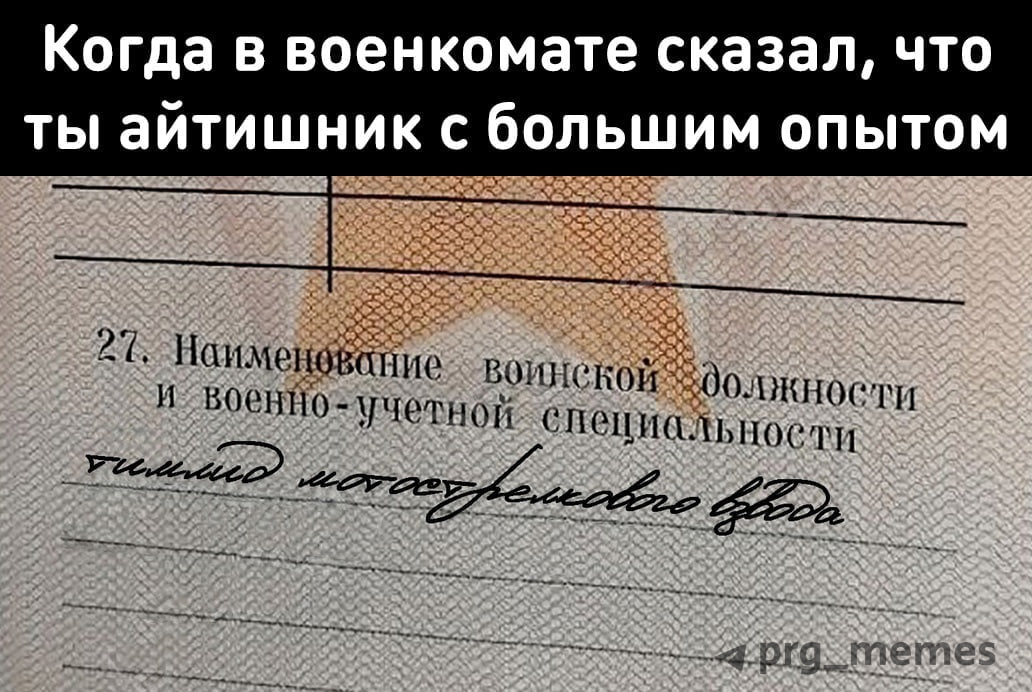 Когда в военкомате сказал, что
ты айтишник с большим опытом
27. Наименование воинской должности
и военно-учетной специальности
тимлид мотострелкового взвода
prg_memes